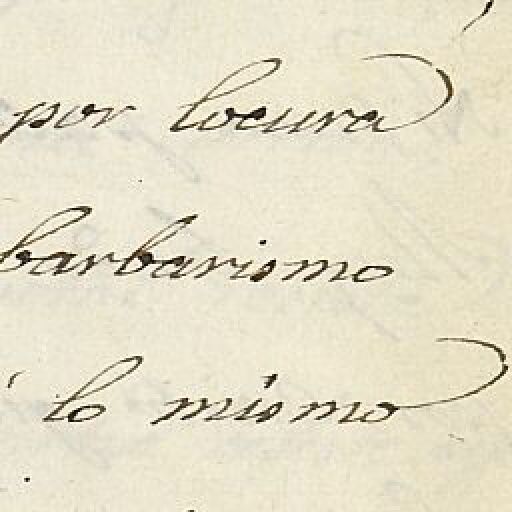 por locura
barbarismo
lo mismo